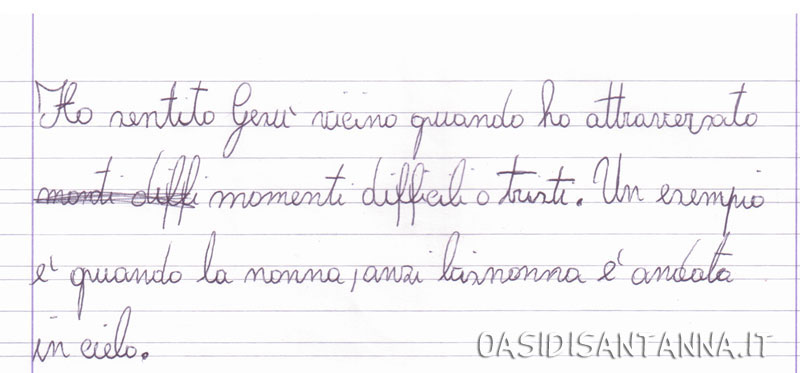 Ho sentito Gesù vicino quando ho attraversato
monti diffi momenti difficili o tristi. Un esempio
è quando la nonna, anzi la bisnonna è andata
in cielo.
OASIDISANTANNA.IT